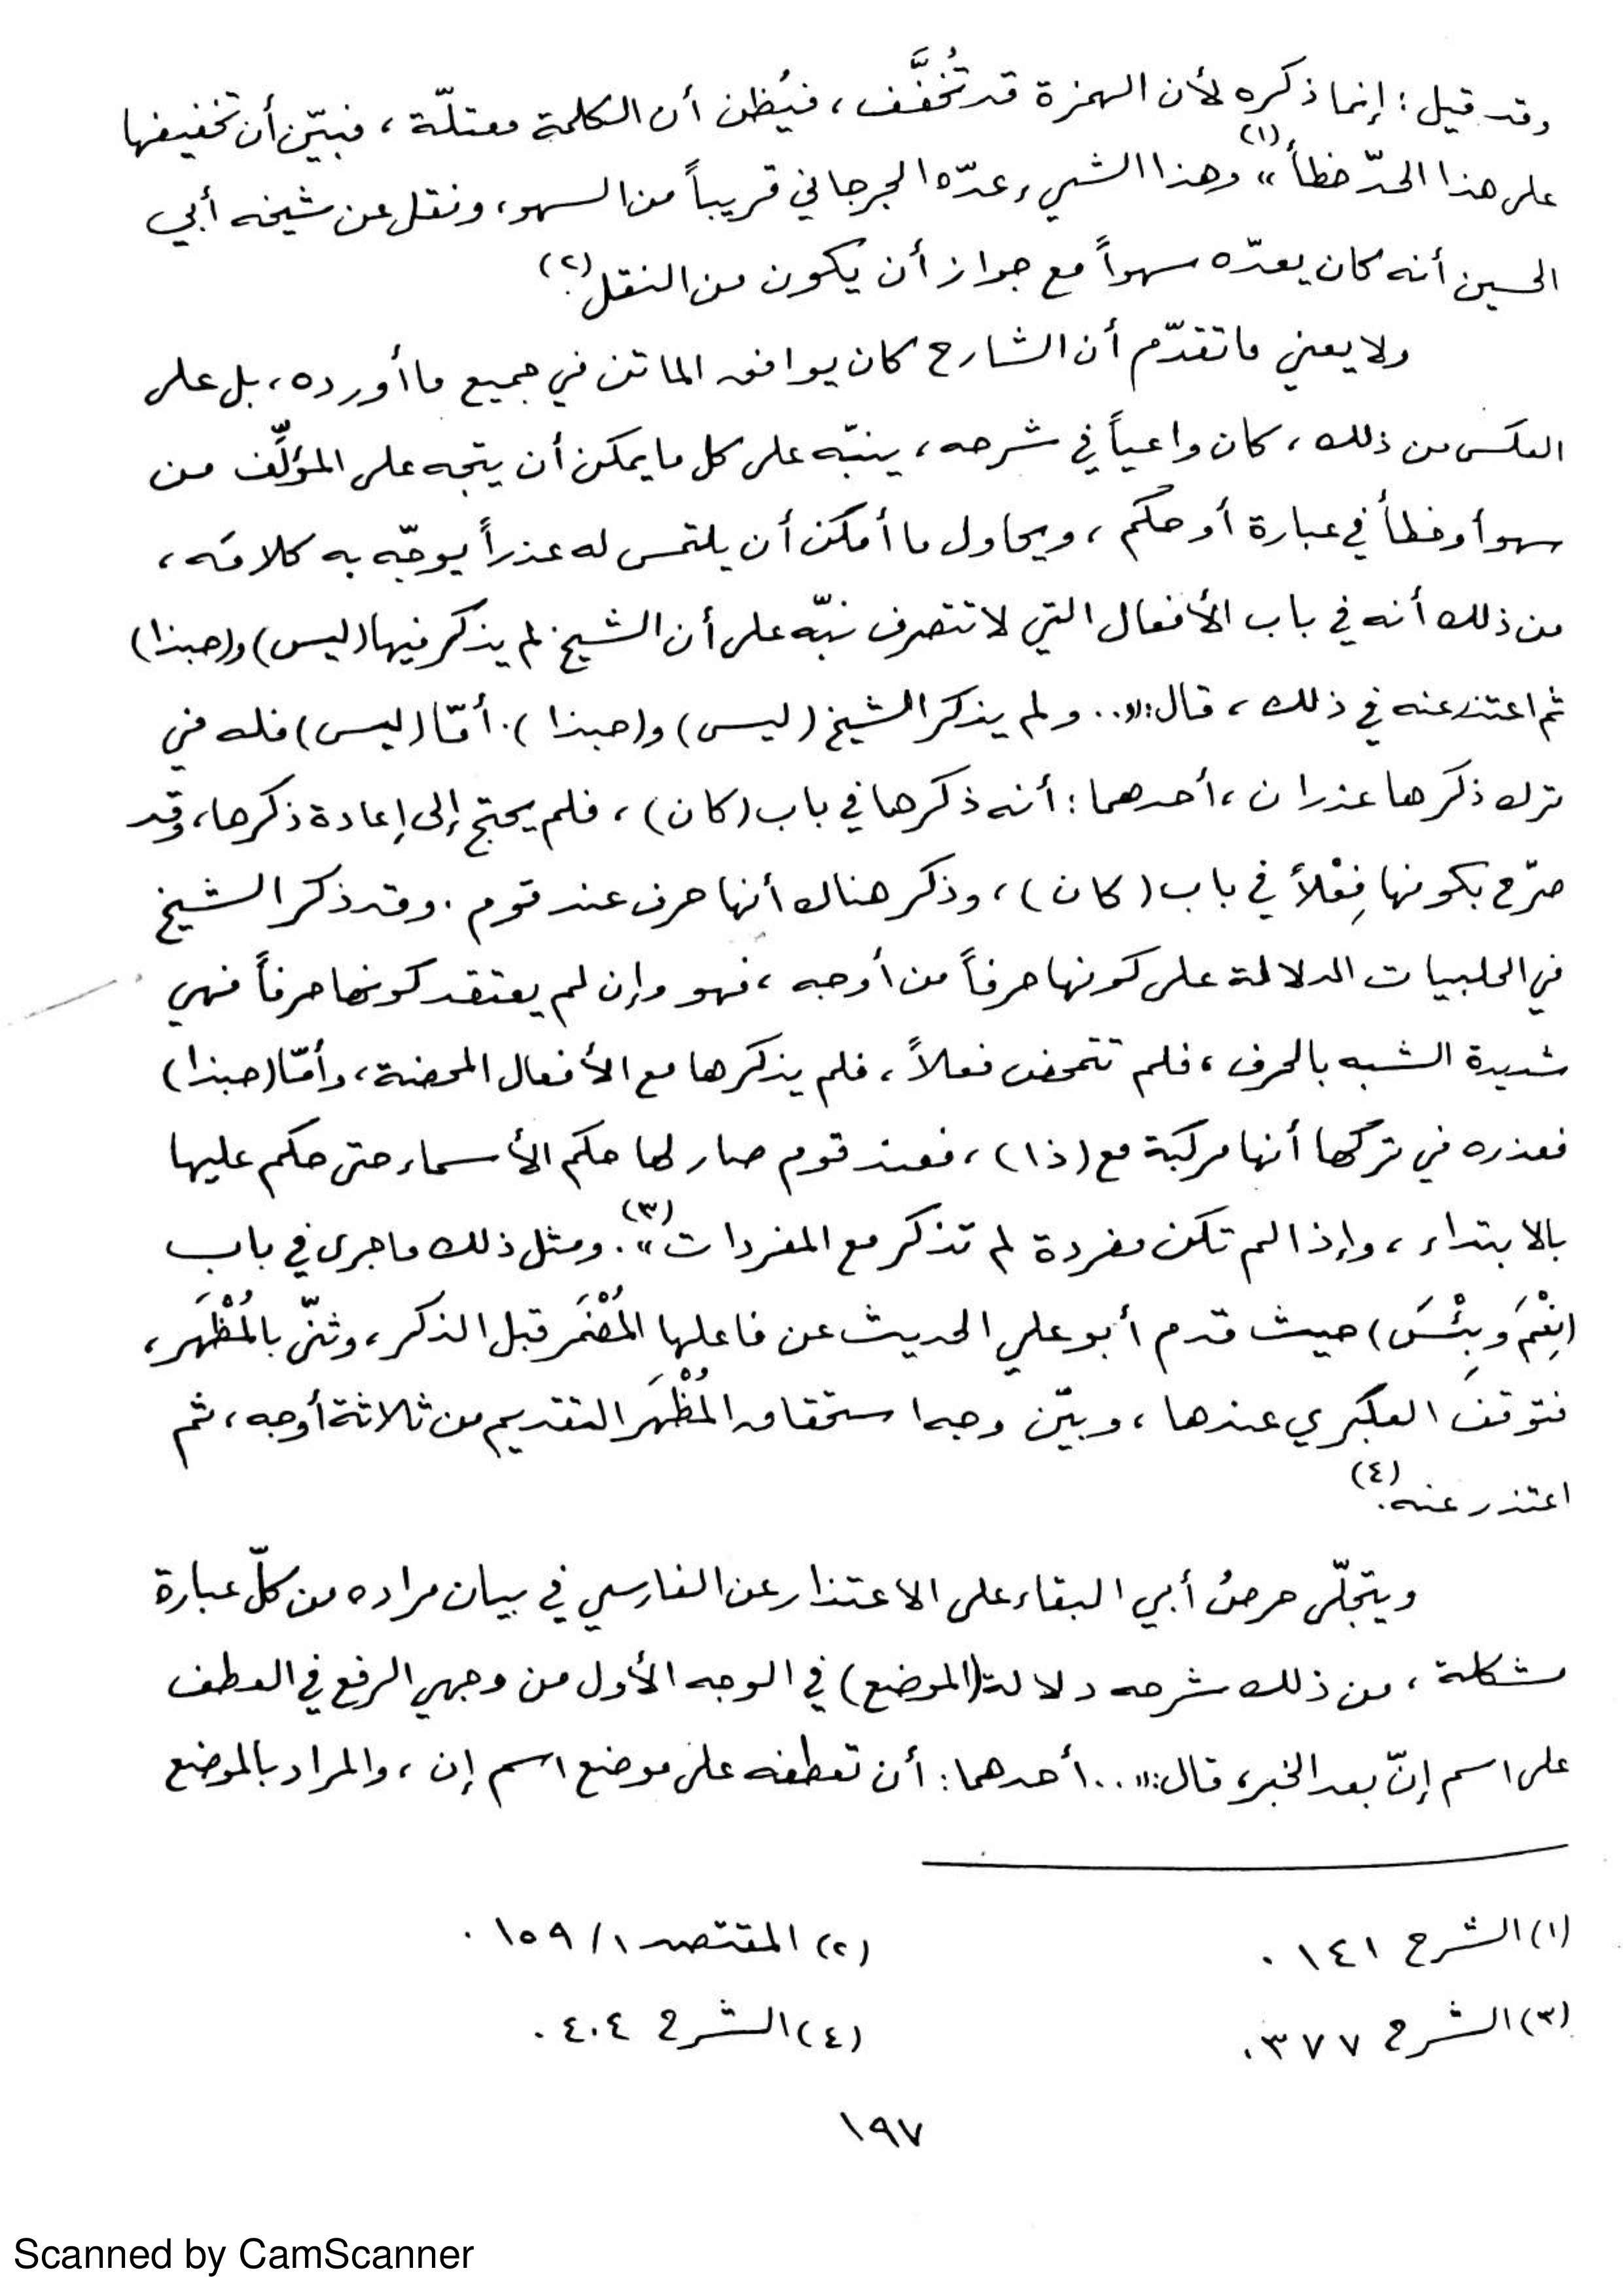 وقد قيل : إنما ذكره لأن الهمزة قد تُخفَّف ، فيُظن أن الكلمة معتلّة ، فبيّن أن تخفيفها
على هذا الحدّ خطأ »(١) وهذا الشيء عدّه الجرجاني قريباً من السهو ، ونقل عن شيخه أبي
الحسين أنه كان يعدّه سهواً مع جواز أن يكون من النقل(٢).
ولا يعني ما تقدّم أن الشارح كان يوافق الماتن في جميع ما أورده ، بل على
العكس من ذلك ، كان واعياً في شرحه ، ينبّه على كل ما يمكن أن يتجه على المؤلِّف من
سهو أو خطأ في عبارة أو حكم ، ويحاول ما أمكن أن يلتمس له عذراً يوجّه به كلامَه ،
من ذلك أنه في باب الأفعال التي لا تتصرف نبّه على أن الشيخ لم يذكر فيها (ليس) و(حبذا)
ثم اعتذر عنه في ذلك ، قال : «.. ولم يذكر الشيخ (ليس) و(حبذا). أمّا (ليس) فله في
ترك ذكرها عذران ، أحدهما : أنه ذكرها في باب (كان) ، فلم يحتج إلى إعادة ذكرها ، وقد
صرّح بكونها فِعْلاً في باب (كان) ، وذكر هناك أنها حرف عند قوم . وقد ذكر الشيخ
في الحلبيات الدلالة على كونها حرفاً من أوجه ، فهو وإن لم يعتقد كونها حرفاً فهي
شديدة الشبه بالحرف ، فلم تتمحض فعلاً ، فلم يذكرها مع الأفعال المحضة ، وأمّا (حبذا)
فعذره في تركها أنها مركبة مع (ذا) ، فعند قوم صار لها حكم الأسماء حتى حكم عليها
بالابتداء ، وإذا لم تكن مفردة لم تذكر مع المفردات »(٣). ومثل ذلك ما جرى في باب
(نِعْمَ وبِئْسَ) حيث قدم أبو علي الحديث عن فاعلها المُضْمَر قبل الذكر ، وثنّى بالمُظْهَر ،
فتوقف العكبري عندها ، وبيّن وجه استحقاق المُظْهَر التقديم من ثلاثة أوجه ، ثم
اعتذر عنه(٤).
ويتجلّى حرصُ أبي البقاء على الاعتذار عن الفارسي في بيان مراده من كلّ عبارة
مشكلة ، من ذلك شرحه دلالة (الموضع) في الوجه الأول من وجهي الرفع في العطف
على اسم إنّ بعد الخبر ، قال : «.. أحدهما : أن تعطفه على موضع اسم إن ، والمراد بالموضع
(١) الشرح ١٤١ .
(٢) المقتصد ١/١٥٩ .
(٣) الشرح ٣٧٧ .
(٤) الشرح ٤٠٤ .
١٩٧
Scanned by CamScanner